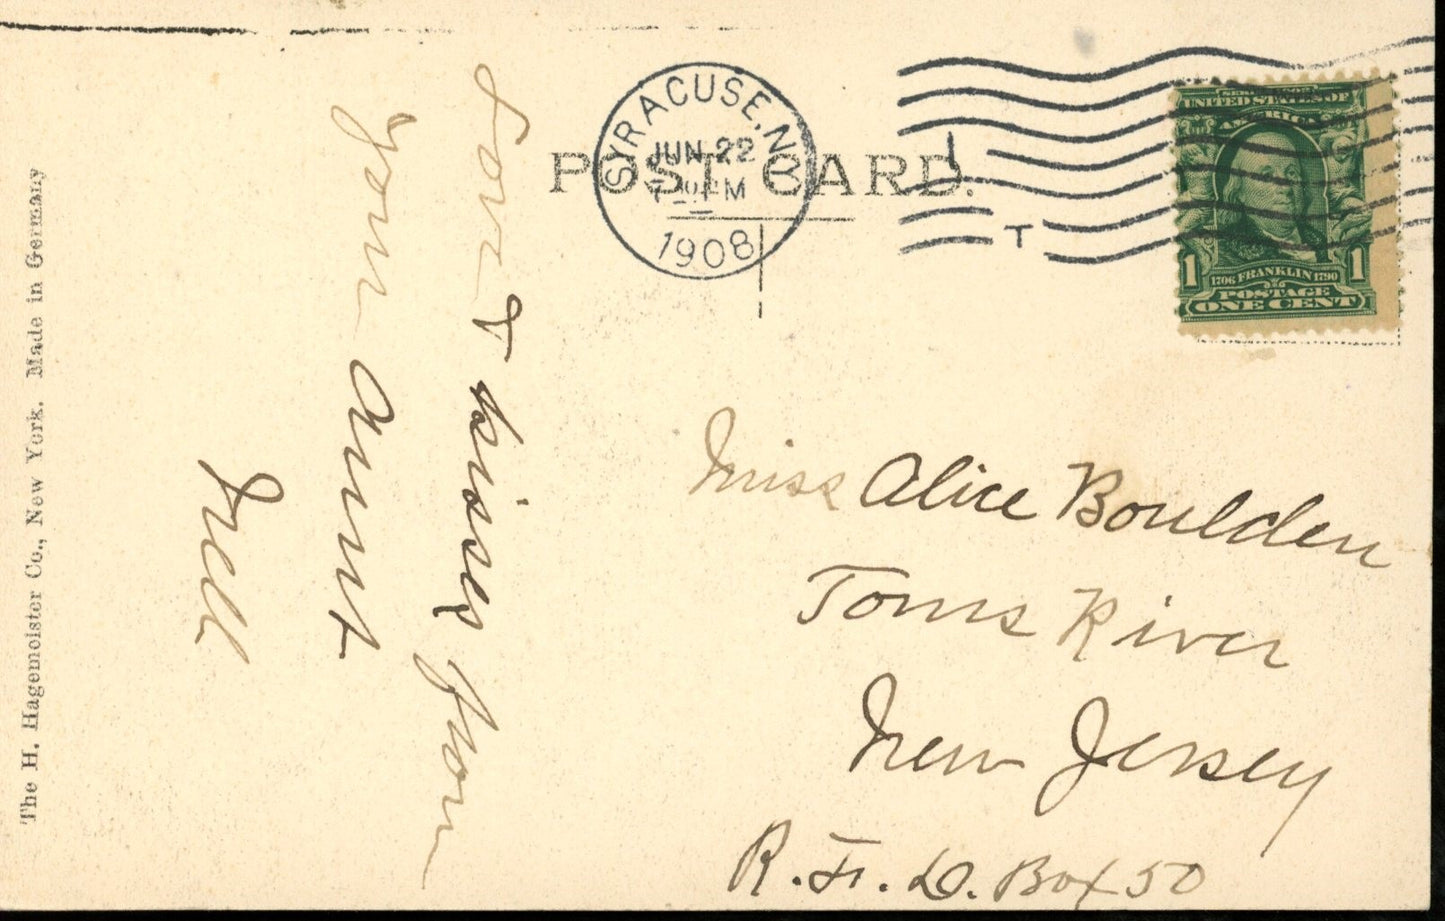 The H. Hagemeister Co., New York. Made in Germany
POST CARD.
SYRACUSE, N.Y.
JUN 22
1908
T
SERIES 1902
UNITED STATES OF
AMERICA
1 1706 FRANKLIN 1790 1
POSTAGE
ONE CENT
Love & kisses from
your aunt
Nell
Miss Alice Boulden
Toms River
New Jersey
R.F.D. Box 50